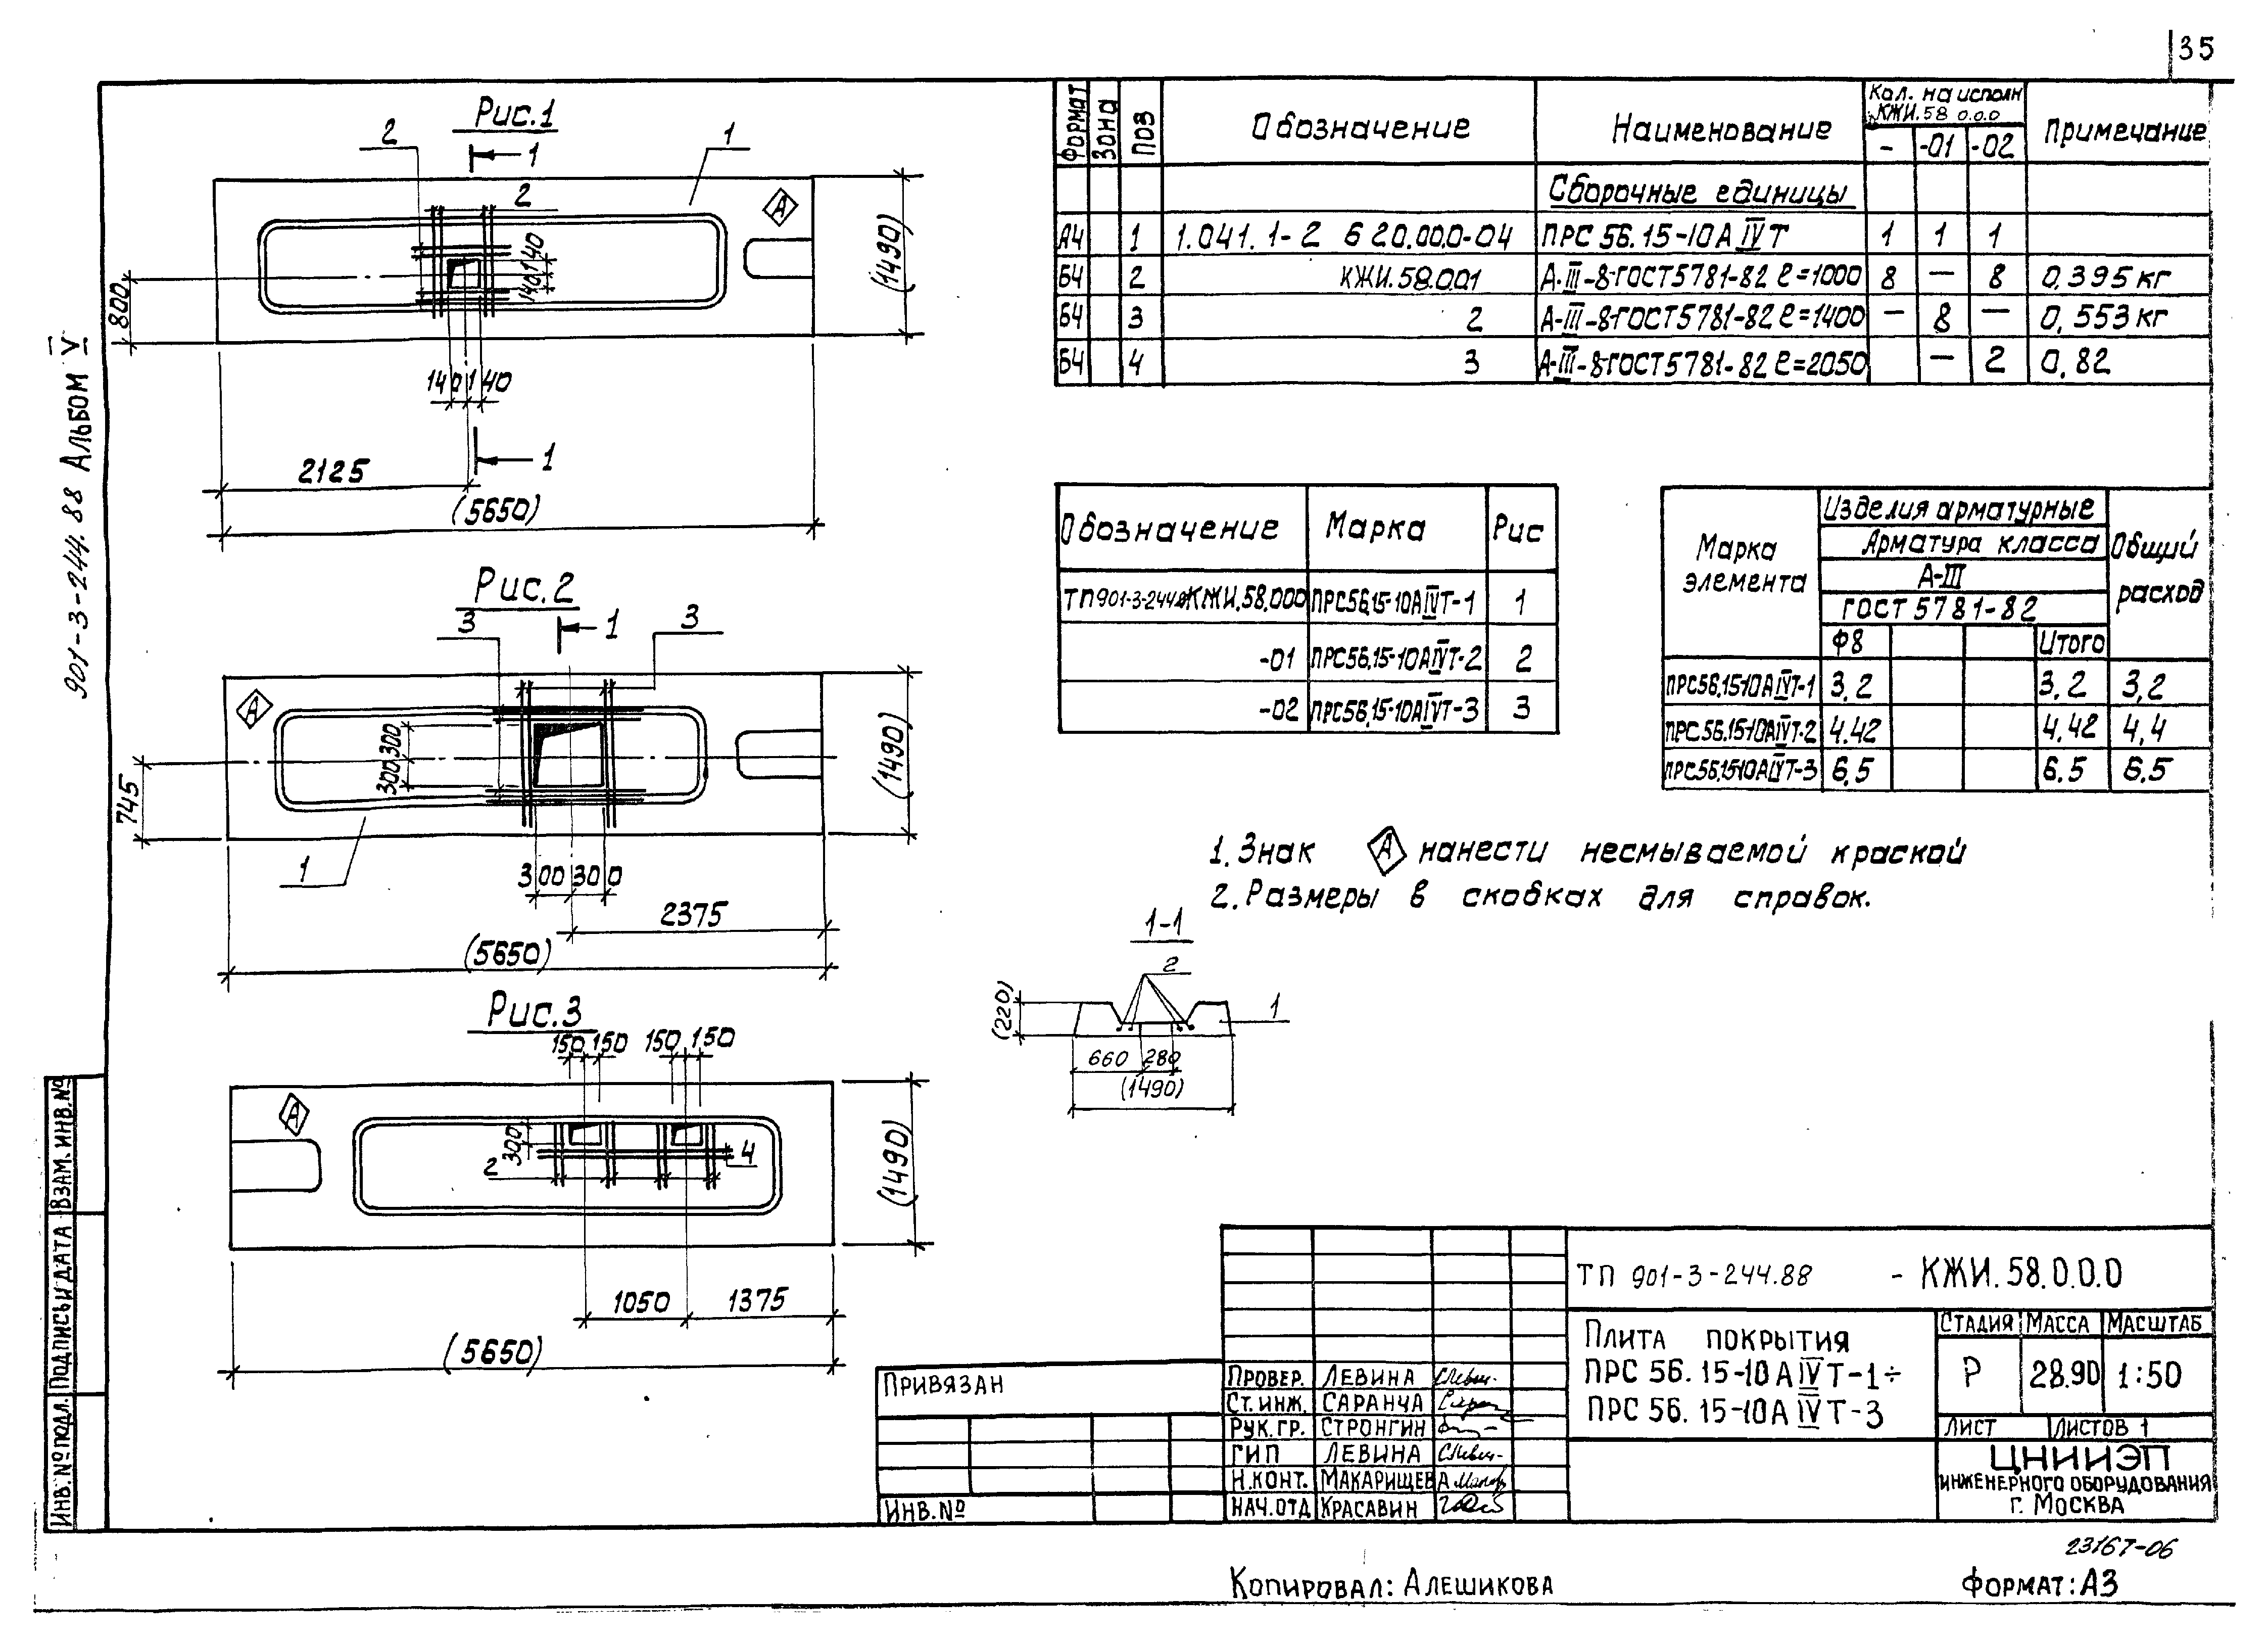 35
901-3-244.88 Альбом V
Рис.1
2
1
1
2
А
140
140
(1490)
800
140 140
1
2125
(5650)
Рис.2
3
1
3
А
300 300
(1490)
745
1
300 300
2375
(5650)
Рис.3
150 150 150 150
А
300
2
4
(1490)
1050 1375
(5650)
Формат Зона Поз Обозначение Наименование Кол. на исполн КЖИ.58 0.0.0 Примечание
- -01 -02
Сборочные единицы
А4 1 1.041.1-2 6 20.000-04 ПРС 56.15-10А IV Т 1 1 1
Б4 2 КЖИ.58.0.01 А-III-8-ГОСТ 5781-82 ℓ=1000 8 — 8 0,395 кг
Б4 3 2 А-III-8-ГОСТ 5781-82 ℓ=1400 — 8 — 0,553 кг
Б4 4 3 А-III-8-ГОСТ 5781-82 ℓ=2050 — 2 0,82
Обозначение Марка Рис
ТП 901-3-244.88 КЖИ.58.000 ПРС56.15-10АIVТ-1 1
-01 ПРС56.15-10АIVТ-2 2
-02 ПРС56.15-10АIVТ-3 3
Марка элемента Изделия арматурные Общий расход
Арматура класса
А-III
ГОСТ 5781-82
Ф8 Итого
ПРС56.15-10АIVТ-1 3,2 3,2 3,2
ПРС.56.15-10АIVТ-2 4.42 4,42 4,4
ПРС56.15-10АIVТ-3 6,5 6.5 6.5
1. Знак А нанести несмываемой краской
2. Размеры в скобках для справок.
1-1
2
1
(220)
660 280
(1490)
Привязан
Инв.№
Провер. Левина
Ст.инж. Саранча
Рук.гр. Стронгин
ГИП Левина
Н.конт. Макарищева
Нач.отд Красавин
ТП 901-3-244.88 - КЖИ.58.0.0.0
Плита покрытия
ПРС 56.15-10А IV Т-1÷
ПРС 56.15-10А IV Т-3
Стадия Масса Масштаб
Р 28.90 1:50
Лист Листов 1
ЦНИИЭП
инженерного оборудования
г. Москва
Инв.№ подл. Подпись и дата Взам.инв.№
23167-06
Копировал: Алешикова
Формат: А3